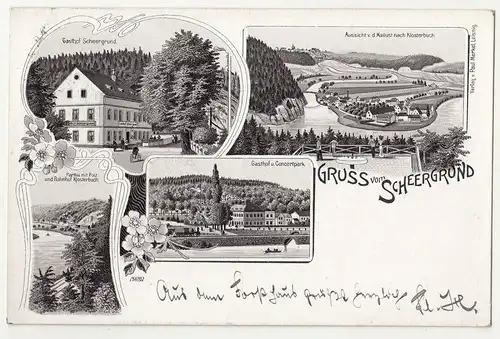 Gasthof Scheergrund.
Aussicht v. d. Mailust nach Klosterbuch
Verlag v. Paul Market, Leisnig
Partie mit
und Bahnhof Klosterbuch
Gasthof u. Concertpark
GRUSS vom SCHEERGRUND
Aus dem Forsthaus grüßt herzlich